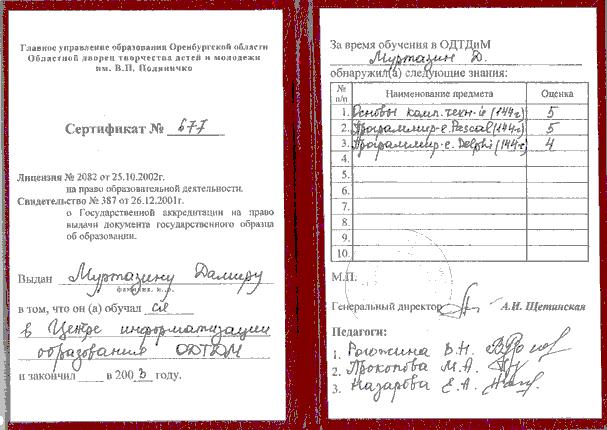 Главное управление образования Оренбургской области
Областной дворец творчества детей и молодежи
им. В.П. Поляничко
Сертификат № 677
Лицензия № 2082 от 25.10.2002г.
на право образовательной деятельности.
Свидетельство № 387 от 26.12.2001г.
о Государственной аккредитации на право
выдачи документа государственного образца
об образовании.
Выдан Муртазину Дамиру
фамилия, и., о.
в том, что он (а) обучал ся
в Центре информатизации
образования ОДТДМ
и закончил в 2003 году.
За время обучения в ОДТДиМ
Муртазин Д.
обнаружил(а) следующие знания:
№ п/п Наименование предмета Оценка
1. Основы комп. техн-и (144ч) 5
2. Программир-е. Pascal (144ч) 5
3. Программир-е. Delphi (144ч) 4
4.
5.
6.
7.
8.
9.
10.
М.П.
Генеральный директор А.И. Щетинская
Педагоги:
1. Рогожина В.Н.
2. Прокопова М.А.
3. Назарова Е.А.